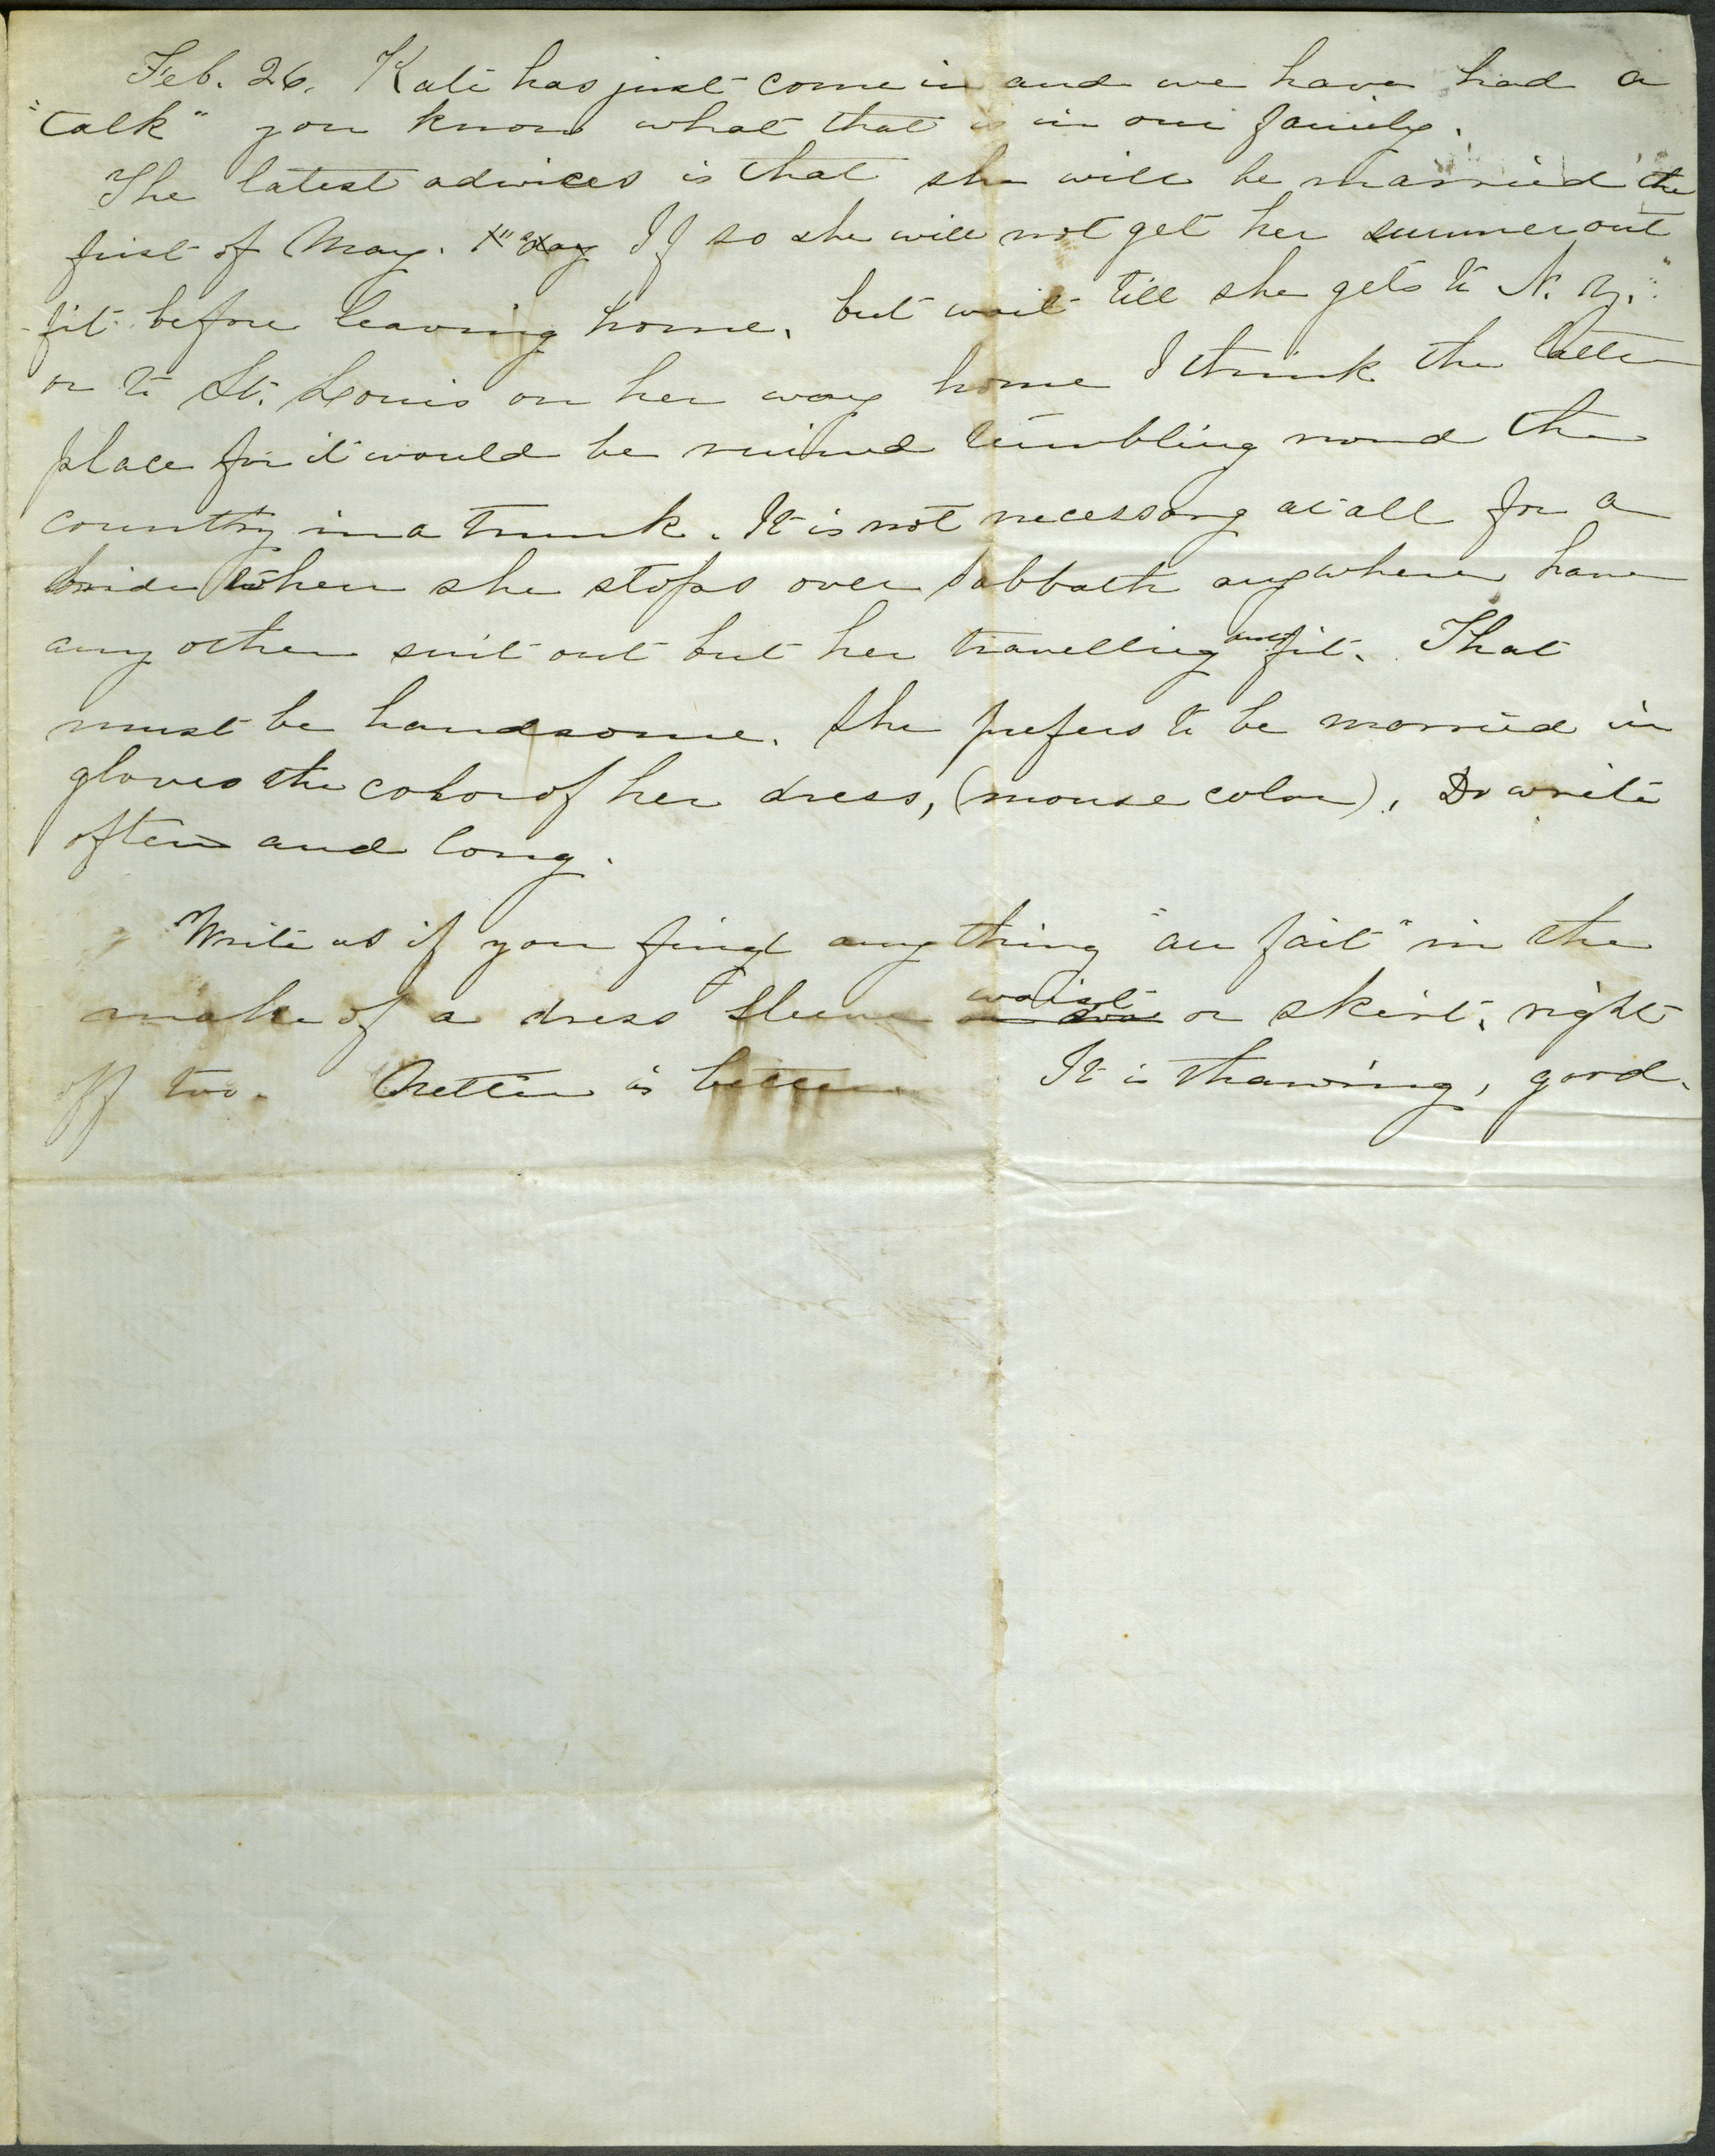 Feb. 26. Kate has just come in and we have had a
"talk" you know what that is in our family.
The latest advices is that she will be married the
first of May. If so she will not get her summer out
-fit before leaving home, but wait till she gets to N. Y.
or to St. Louis on her way home I think the latter
place for it would be ruined tumbling round the
country in a trunk. It is not necessary at all for a
bride when she stops over Sabbath anywhere have
any other suit out but her travelling outfit. That
must be handsome. She prefers to be married in
gloves the color of her dress, (mouse color). Do write
often and long.
Write us if you find any thing "au fait" in the
make of a dress sleeve waist or skirt, right
off too. is better It is thawing, good.